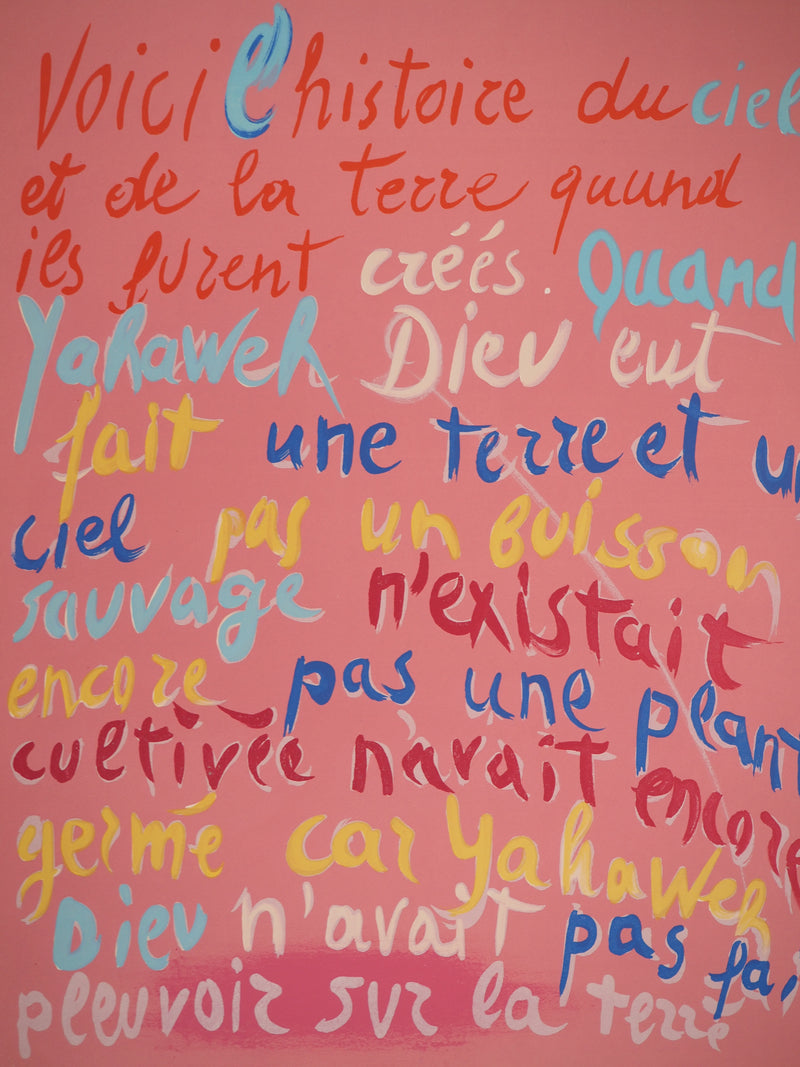 Voici l'histoire du ciel
et de la terre quand
ils furent créés. Quand
Yahaweh Dieu eut
fait une terre et u
ciel pas un buisson
sauvage n'existait
encore pas une plant
cultivée n'avait encore
germé car Yahaweh
Dieu n'avait pas fai
pleuvoir sur la terre